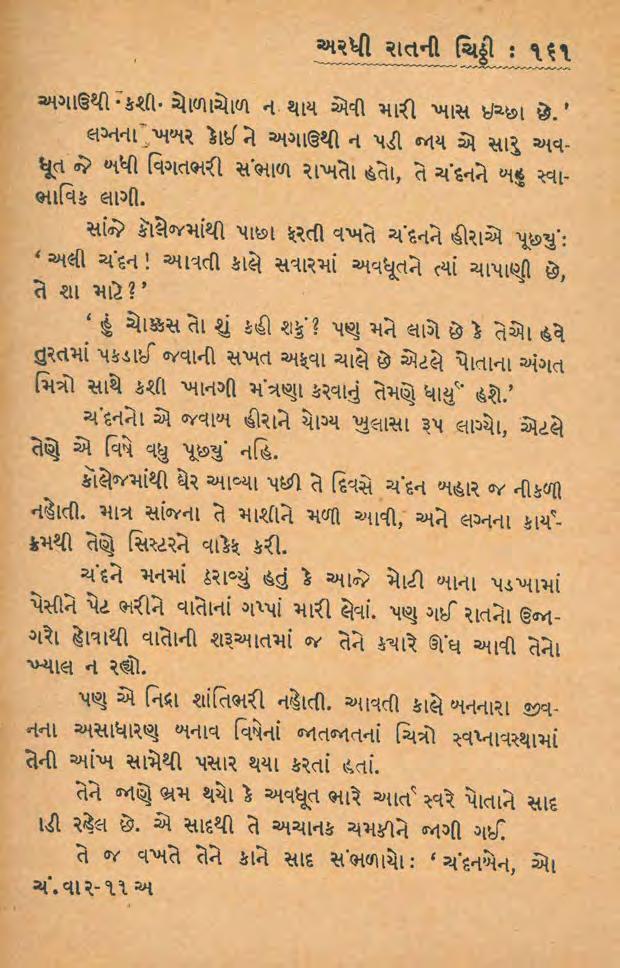 અરધી રાતની ચિઠ્ઠી : ૧૬૧
અગાઉથી કશી ચોળાચોળ ન થાય એવી મારી ખાસ ઇચ્છા છે.'
લગ્નના ખબર કોઈ ને અગાઉથી ન પડી જાય એ સારુ અવ-
ધૂત જે બધી વિગતભરી સંભાળ રાખતો હતો, તે ચંદનને બહુ સ્વા-
ભાવિક લાગી.
સાંજે કૉલેજમાંથી પાછા ફરતી વખતે ચંદનને હીરાએ પૂછ્યું:
‘અલી ચંદન! આવતી કાલે સવારમાં અવધૂતને ત્યાં ચાપાણી છે,
તે શા માટે?'
‘હું ચોક્કસ તો શું કહી શકું? પણ મને લાગે છે કે તેઓ હવે
તુરતમાં પકડાઈ જવાની સખત અફવા ચાલે છે એટલે પોતાના અંગત
મિત્રો સાથે કશી ખાનગી મંત્રણા કરવાનું તેમણે ધાર્યું હશે.'
ચંદનનો એ જવાબ હીરાને યોગ્ય ખુલાસા રૂપ લાગ્યો, એટલે
તેણે એ વિષે વધુ પૂછ્યું નહિ.
કૉલેજમાંથી ઘેર આવ્યા પછી તે દિવસે ચંદન બહાર જ નીકળી
નહોતી. માત્ર સાંજના તે માશીને મળી આવી, અને લગ્નના કાર્ય-
ક્રમથી તેણે સિસ્ટરને વાકેફ કરી.
ચંદને મનમાં ઠરાવ્યું હતું કે આજે મોટી બાના પડખામાં
પેસીને પેટ ભરીને વાતોનાં ગપ્પાં મારી લેવાં. પણ ગઈ રાતનો ઉજા-
ગરો હોવાથી વાતોની શરૂઆતમાં જ તેને ક્યારે ઊંઘ આવી તેનો
ખ્યાલ ન રહ્યો.
પણ એ નિદ્રા શાંતિભરી નહોતી. આવતી કાલે બનનારા જીવ-
નના અસાધારણ બનાવ વિષેનાં જાતજાતનાં ચિત્રો સ્વપ્નાવસ્થામાં
તેની આંખ સામેથી પસાર થયા કરતાં હતાં.
તેને જાણે ભ્રમ થયો કે અવધૂત ભારે આર્ત સ્વરે પોતાને સાદ
ાડી રહેલ છે. એ સાદથી તે અચાનક ચમકીને જાગી ગઈ.
તે જ વખતે તેને કાને સાદ સંભળાયો: ‘ચંદનબેન, ઓ
ચં.વાર-૧૧ અ